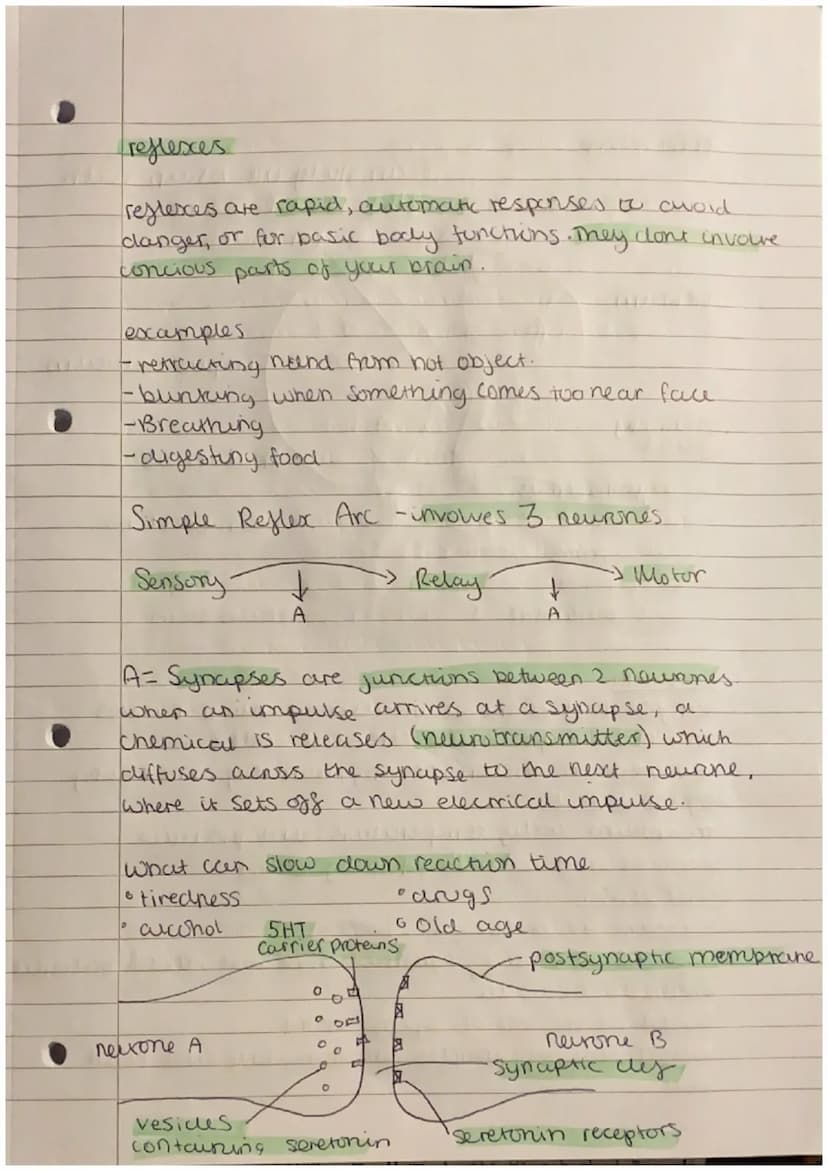 reflexes
reflexes are rapid, automatic responses to avoid
danger, or for basic body functions. They dont involve
concious parts of your brain.
examples
- retracting hand from hot object.
- blinking when something comes too near face
- Breathing
- digesting food
Simple Reflex Arc - involves 3 neurones
Sensory → Relay → Motor
A A
A= Synapses are junctions between 2 neurones.
when an impulse arrives at a synapse, a
chemical is releases (neurotransmitter) which
diffuses across the synapse to the next neurone,
where it sets off a new electrical impulse.
what can slow down reaction time
• tiredness • drugs
• alcohol • Old age
5HT
carrier proteins
postsynaptic membrane
neurone A neurone B
synaptic clef
vesicles
containing seretonin
seretonin receptors